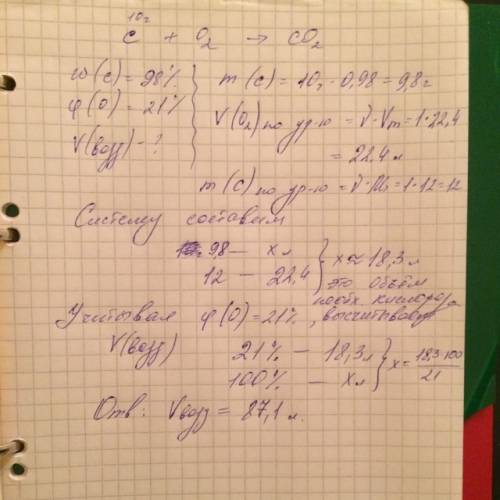 10г
C + O₂ → CO₂
ω(C) = 98%
φ(O) = 21%
V(возд) - ?
m(C) = 10г · 0,98 = 9,8г
V(O₂) по ур-ю = ν · Vm = 1 · 22,4
= 22,4 л
m(C) по ур-ю = ν · M = 1 · 12 = 12
Систему составим
98 — x л
12 — 22,4
x ≈ 18,3 л
это объём
кислорода
Учитывая φ(O) = 21%, высчитываем
V(возд)
21% — 18,3 л
100% — x л
x = 18,3·100/21
Отв: V возд = 87,1 л.